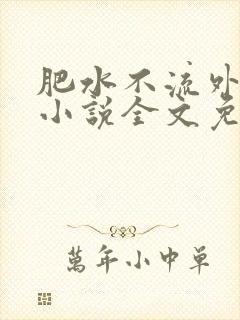 肥水不流外
小説全文免
萬年小中單